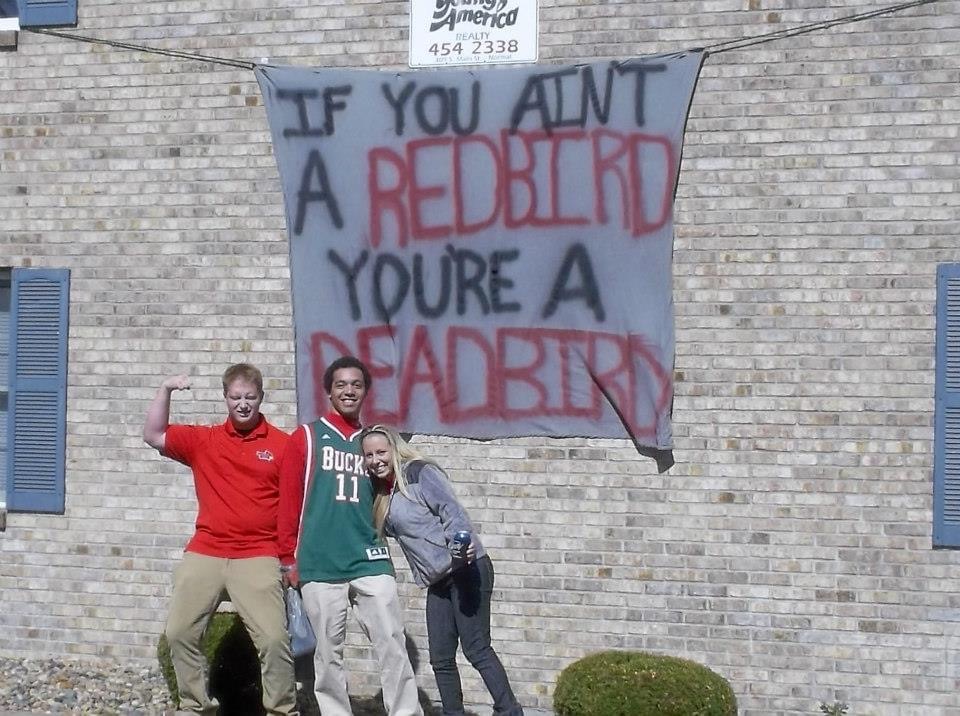 Young
America
REALTY
454 2338
IF YOU AIN'T
A REDBIRD
YOU'RE A
DEADBIRD
BUCKS
11